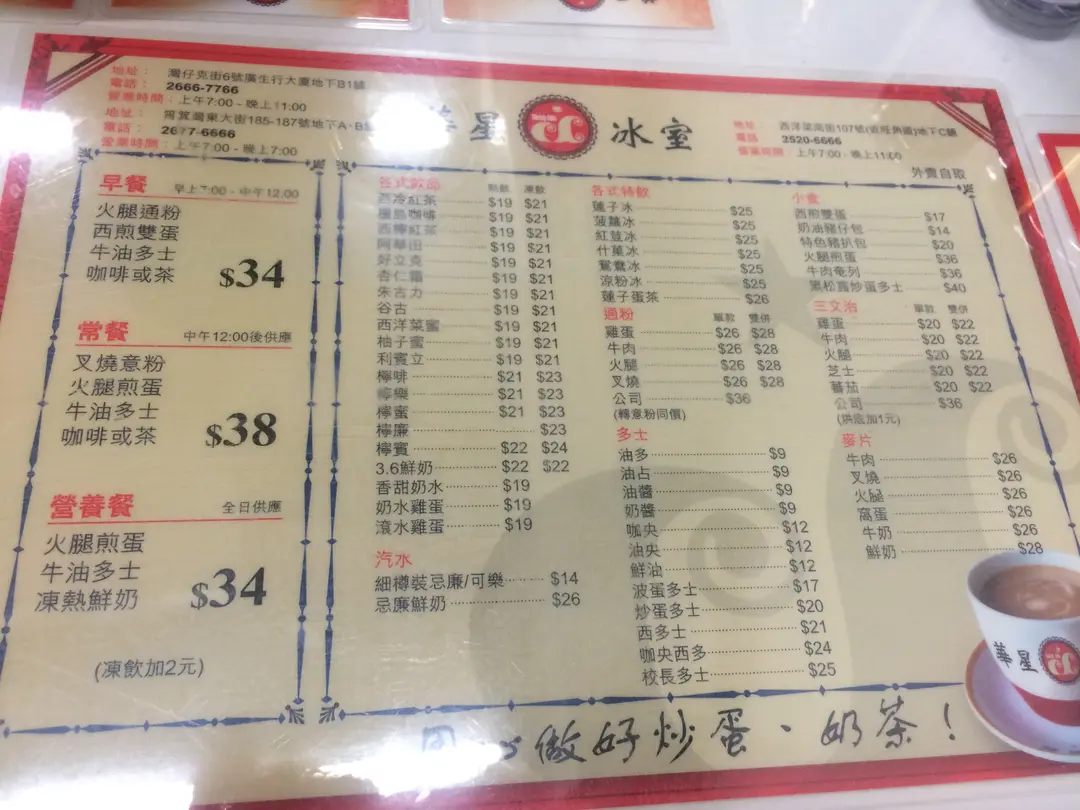 地址： 灣仔克街6號廣生行大廈地下B1舖
電話： 2666-7766
營業時間：上午7:00 - 晚上11:00
地址： 筲箕灣東大街185-187號地下A、B
電話： 2677-6666
營業時間：上午7:00 - 晚上7:00
華星 冰室
地址： 西洋菜南街107號(近旺角道)地下C舖
電話 2520-6666
營業時間： 上午7:00 - 晚上11:00
外賣自取
早餐 早上7:00 - 中午12:00
火腿通粉
西煎雙蛋
牛油多士
咖啡或茶 $34
常餐 中午12:00後供應
叉燒意粉
火腿煎蛋
牛油多士
咖啡或茶 $38
營養餐 全日供應
火腿煎蛋
牛油多士
凍熱鮮奶 $34
(凍飲加2元)
各式飲品 熱飲 凍飲
西冷紅茶 $19 $21
咖啡 $19 $21
西檸紅茶 $19 $21
阿華田 $19 $21
好立克 $19 $21
杏仁霜 $19 $21
朱古力 $19 $21
谷古 $19 $21
西洋菜蜜 $19 $21
柚子蜜 $19 $21
利賓立 $19 $21
檸啡 $21 $23
檸樂 $21 $23
檸蜜 $21 $23
檸廉 $23
檸賓 $22 $24
3.6鮮奶 $22 $22
香甜奶水 $19
奶水雞蛋 $19
滾水雞蛋 $19
汽水
細樽裝忌廉/可樂 $14
忌廉鮮奶 $26
各式特飲
蓮子冰 $25
菠蘿冰 $25
紅荳冰 $25
什菓冰 $25
鴛鴦冰 $25
涼粉冰 $25
蓮子蛋茶 $26
通粉 單款 雙併
雞蛋 $26 $28
牛肉 $26 $28
火腿 $26 $28
叉燒 $26 $28
公司 $36
(轉意粉同價)
多士
油多 $9
油占 $9
油醬 $9
奶醬 $9
咖央 $12
油央 $12
鮮油 $12
波蛋多士 $17
炒蛋多士 $20
西多士 $21
咖央西多 $24
校長多士 $25
小食
西煎雙蛋 $17
奶油豬仔包 $14
特色豬扒包 $20
火腿煎蛋 $36
牛肉奄列 $36
黑松露炒蛋多士 $40
三文治 單款 雙併
雞蛋 $20 $22
牛肉 $20 $22
火腿 $20 $22
芝士 $20 $22
蕃茄 $20 $22
公司 $36
(烘底加1元)
麥片
牛肉 $26
叉燒 $26
火腿 $26
窩蛋 $26
牛奶 $26
鮮奶 $28
華星
用心做好炒蛋、奶茶！